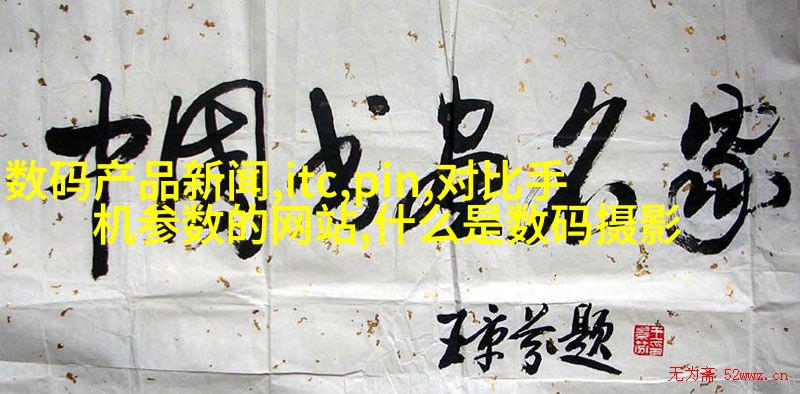 中国书画名家
数码产品新闻,itc,pin,对比手
机参数的网站,什么是数码摄影
王景芬题
无为斋 52wwz.cn